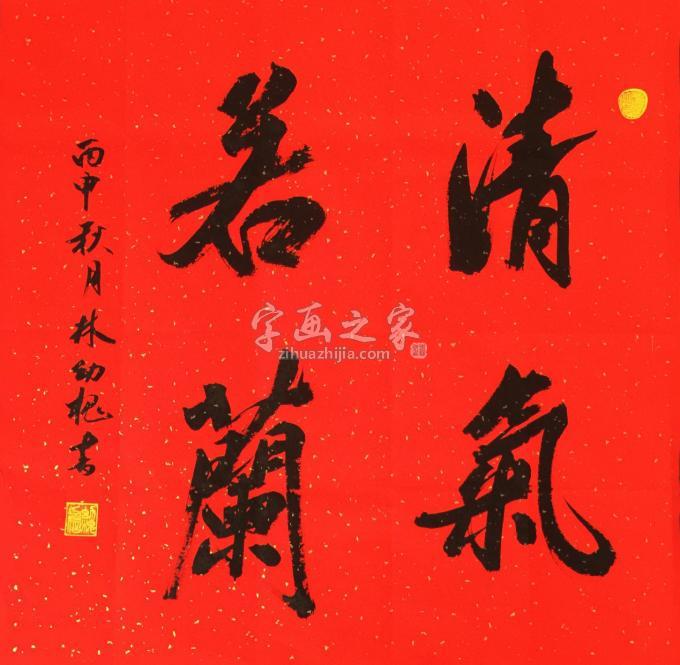 清氣
若蘭
丙申秋月林幼槐書
字画之家
zihuazhijia.com